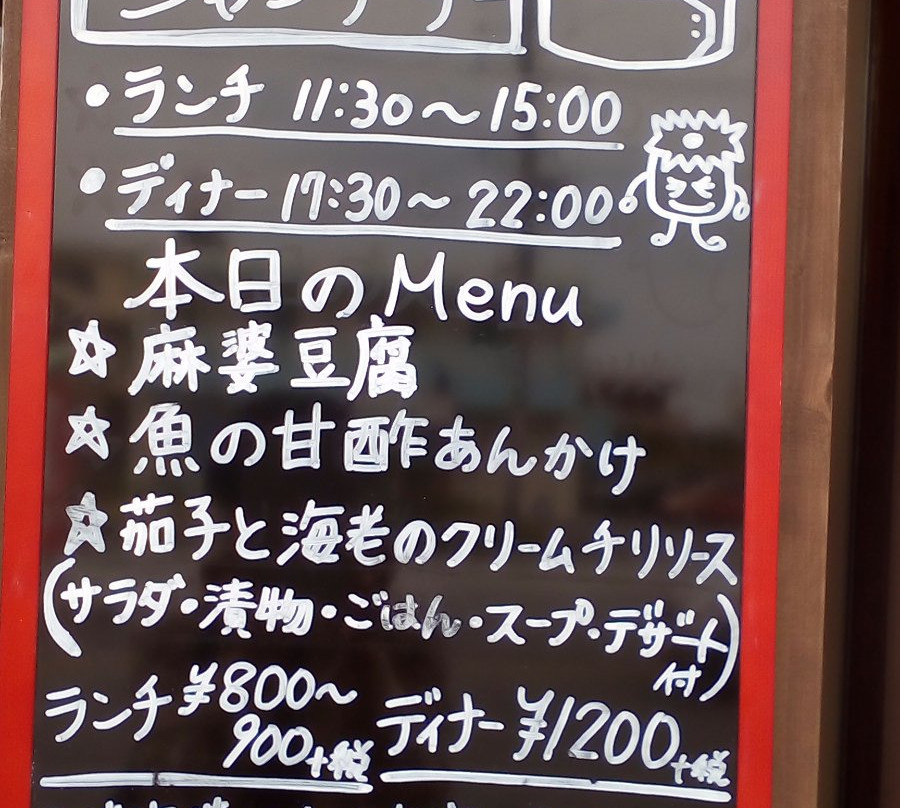 ・ランチ 11:30～15:00
・ディナー 17:30～22:00
本日のMenu
☆麻婆豆腐
☆魚の甘酢あんかけ
☆茄子と海老のクリームチリソース
(サラダ・漬物・ごはん・スープ・デザート付)
ランチ ¥800～900+税 ディナー ¥1200+税